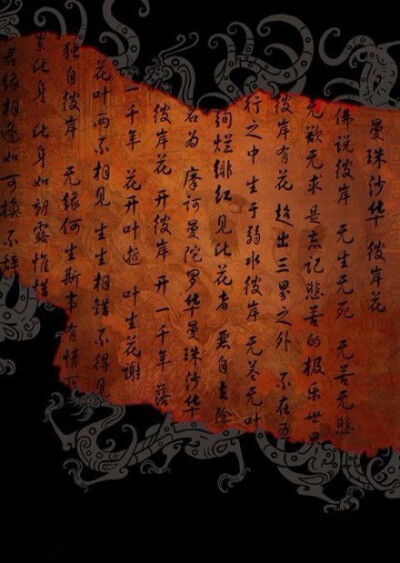 曼珠沙华 彼岸花
佛说彼岸 无生无死 无苦无悲
无欲无求 是忘记悲苦的极乐世
彼岸有花 超出三界之外 不在五
行之中 生于弱水彼岸 无茎无叶
绚烂绯红 见此花者 恶自去除
名为 摩诃曼陀罗华曼珠沙华
彼岸花 开彼岸 开一千年 落
一千年 花开叶 叶生花谢
花叶两不相见 生生相错 不得见
独自彼岸 无缘何生斯世 有情
累此身 此身如朝露 惟惜
君缘相逢如可换 不辞